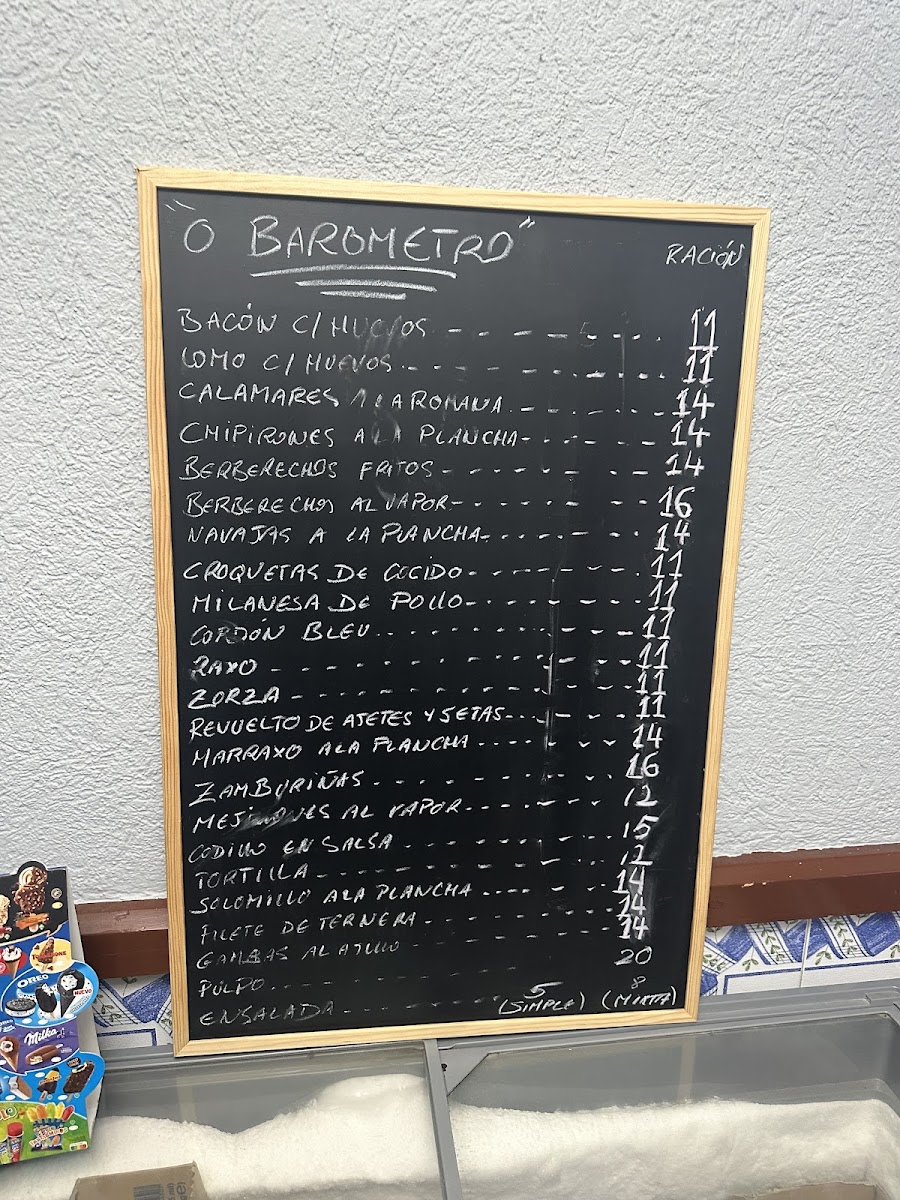 "O BAROMETRO"
RACIÓN
BACÓN C/ HUEVOS 11
LOMO C/ HUEVOS 11
CALAMARES A LA ROMANA 14
CHIPIRONES A LA PLANCHA 14
BERBERECHOS FRITOS 14
BERBERECHOS AL VAPOR 16
NAVAJAS A LA PLANCHA 14
CROQUETAS DE COCIDO 11
MILANESA DE POLLO 11
CORDÓN BLEU 11
RAXO 11
ZORZA 11
REVUELTO DE AJETES Y SETAS 11
MARRAXO A LA PLANCHA 14
ZAMBURIÑAS 16
MEJILLONES AL VAPOR 12
CODILLO EN SALSA 15
TORTILLA 12
SOLOMILLO A LA PLANCHA 14
FILETE DE TERNERA 14
GAMBAS AL AJILLO 14
PULPO 20
ENSALADA 5 (SIMPLE) 8 (MIXTA)
OREO
NUEVO
Milka